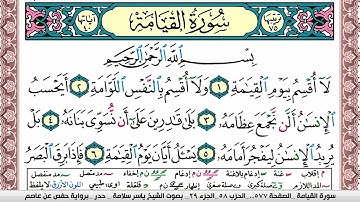 ترتيبها ٧٥ سُورَةُ القِيَامَةِ آياتها ٤٠
بِسْمِ ٱللَّهِ ٱلرَّحْمَـٰنِ ٱلرَّحِيمِ
لَآ أُقْسِمُ بِيَوْمِ ٱلْقِيَـٰمَةِ ١ وَلَآ أُقْسِمُ بِٱلنَّفْسِ ٱللَّوَّامَةِ ٢ أَيَحْسَبُ
ٱلْإِنسَـٰنُ أَلَّن نَّجْمَعَ عِظَامَهُۥ ٣ بَلَىٰ قَـٰدِرِينَ عَلَىٰٓ أَن نُّسَوِّىَ بَنَانَهُۥ ٤ بَلْ
يُرِيدُ ٱلْإِنسَـٰنُ لِيَفْجُرَ أَمَامَهُۥ ٥ يَسْـَٔلُ أَيَّانَ يَوْمُ ٱلْقِيَـٰمَةِ ٦ فَإِذَا بَرِقَ ٱلْبَصَرُ
سورة القيامة . الصفحة ٥٧٧ . الحزب ٥٨ . الجزء ٢٩ . بصوت الشيخ ياسر سلامة . حدر . برواية حفص عن عاصم